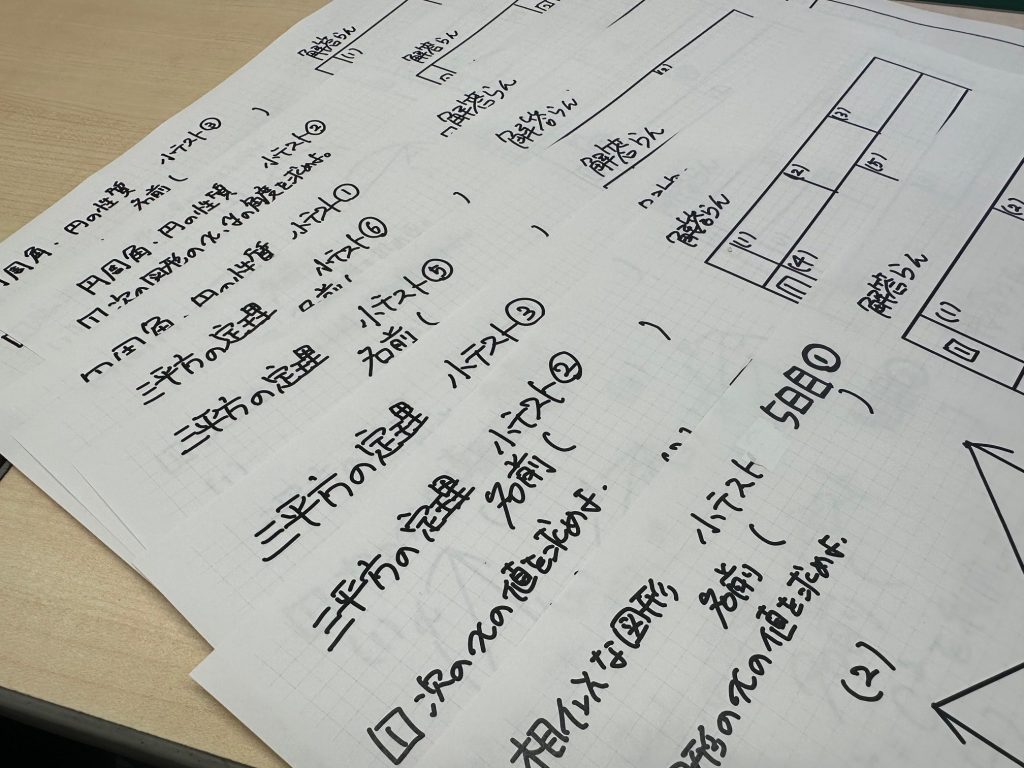 円周角・円の性質 小テスト③
名前( )
解答らん
(1)
円周角・円の性質 小テスト②
次の図形のx、yの角度を求めよ。
解答らん
円周角・円の性質 小テスト①
解答らん
三平方の定理 小テスト⑥
名前( )
解答らん
(2)
三平方の定理 小テスト⑤
名前( )
解答らん
三平方の定理 小テスト③
解答らん
(1) (2) (3)
(4) (5)
三平方の定理 小テスト②
名前( )
1 次のxの値を求めよ.
解答らん
1
(1) (2)
相似な図形 小テスト 5日目①
名前( )
図形のxの値を求めよ.
(2)